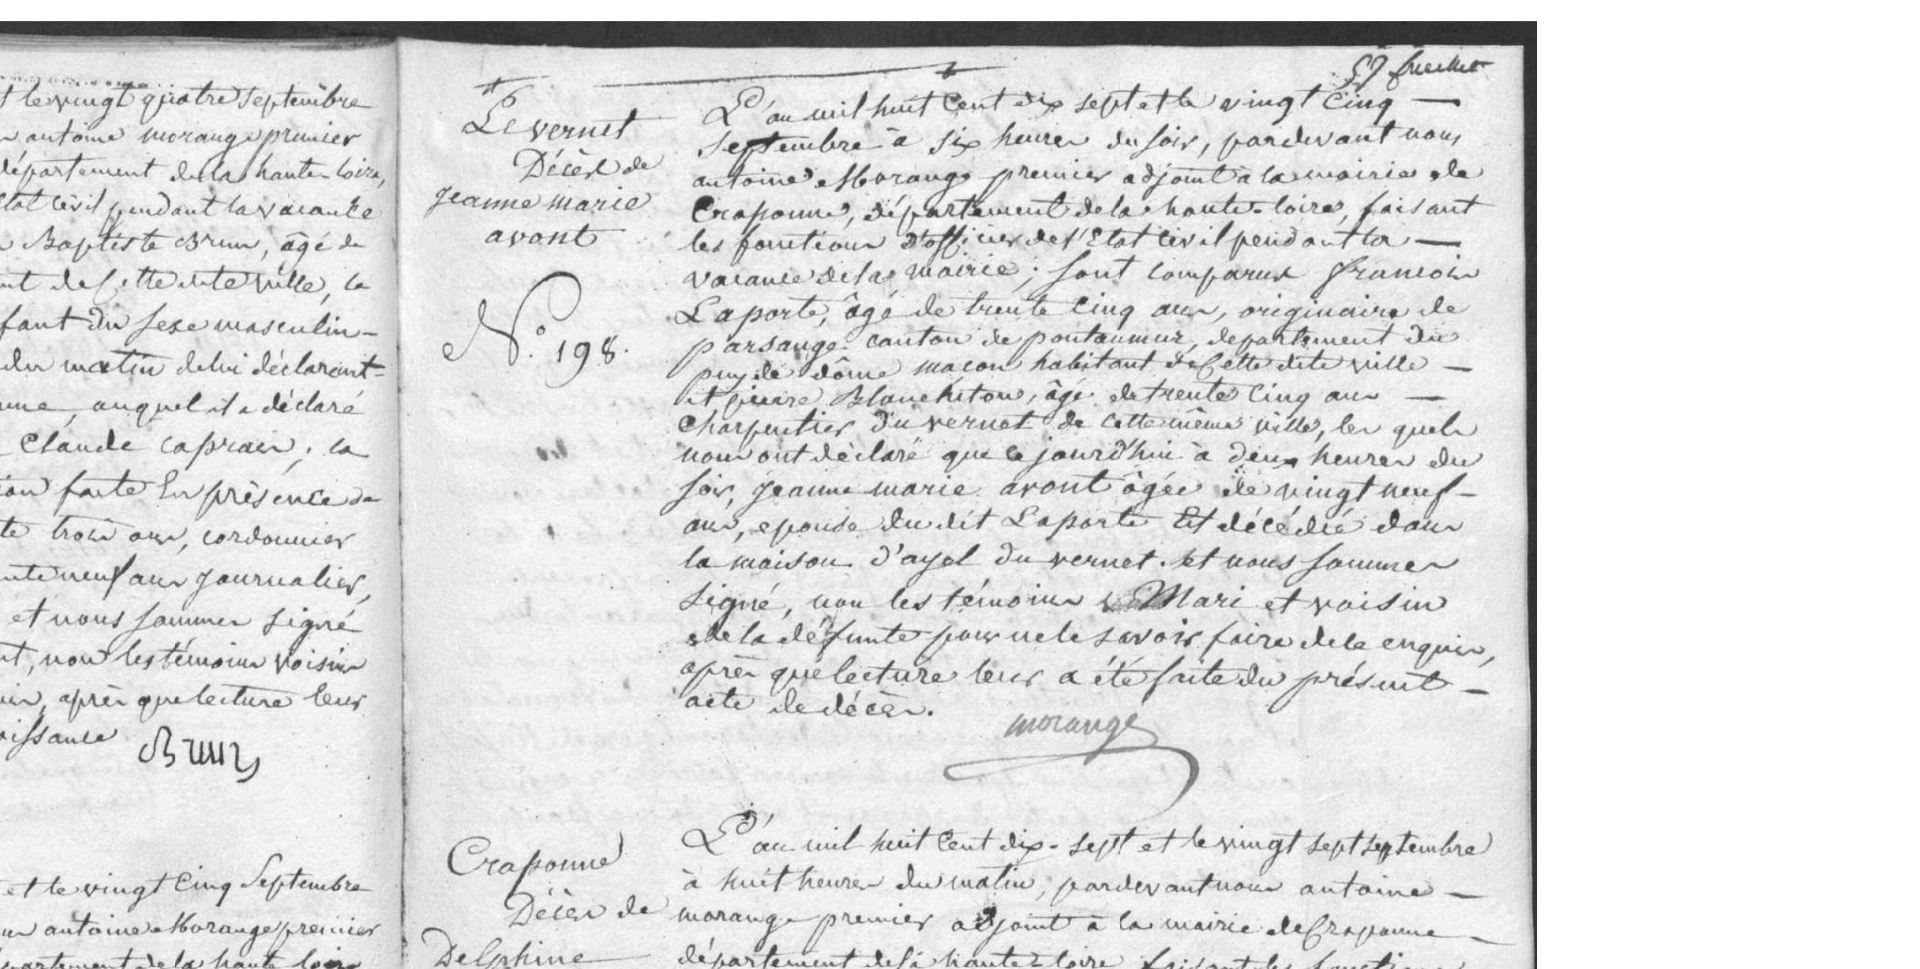 t le vingt quatre Septembre
antoine morange premier
département de la haute loire,
Etat Civil pendant la vacance
Baptiste Brun, âgé de
nt de Cette dite ville, le
fant du sexe masculin
du matin de lui déclarant
auquel il a déclaré
Claude caprais ; la
ion faite En présence de
te trois ans, cordonnier
ante neuf ans journalier,
et nous sommes signé
nt, non les témoins voisins
après que lecture leur
naissance
Brun
et le vingt Cinq Septembre
antoine Morange premier
partement de la haute loire
57 feuillet
Le vernet
Décès de
jeanne marie
avont
N.° 198.
L'an mil huit Cent dix sept et le vingt Cinq
Septembre à six heures du soir, pardevant nous
antoine Morange premier adjoint à la mairie de
Craponne, département de la haute-loire, faisant
les fonctions d'officier de l'Etat Civil pendant la
vacance de la mairie ; sont comparus francois
Laporte, âgé de trente Cinq ans, originaire de
parsange canton de pontaumur, departement du
puy de dôme macon habitant de Cette dite ville
et pierre Blancheton, âgé de trente Cinq ans
Charpentier du vernet de cette même ville, les quels
nous ont déclaré que cejourd'hui à deux heures du
soir, jeanne marie avont âgée de vingt neuf
ans, epouse du dit Laporte Est décédée dans
la maison d'ayel du vernet. et nous sommes
signé, non les témoins Mari et voisin
de la défunte pour ne le savoir faire de ce enquis,
après que lecture leur a été faite du présent
acte de décès.
morange
Craponne
Décès de
Delphine
L'an mil huit Cent dix-sept et le vingt sept septembre
à huit heures du matin, pardevant nous antoine
morange premier adjoint à la mairie de Craponne
département de la haute-loire faisant les fonctions